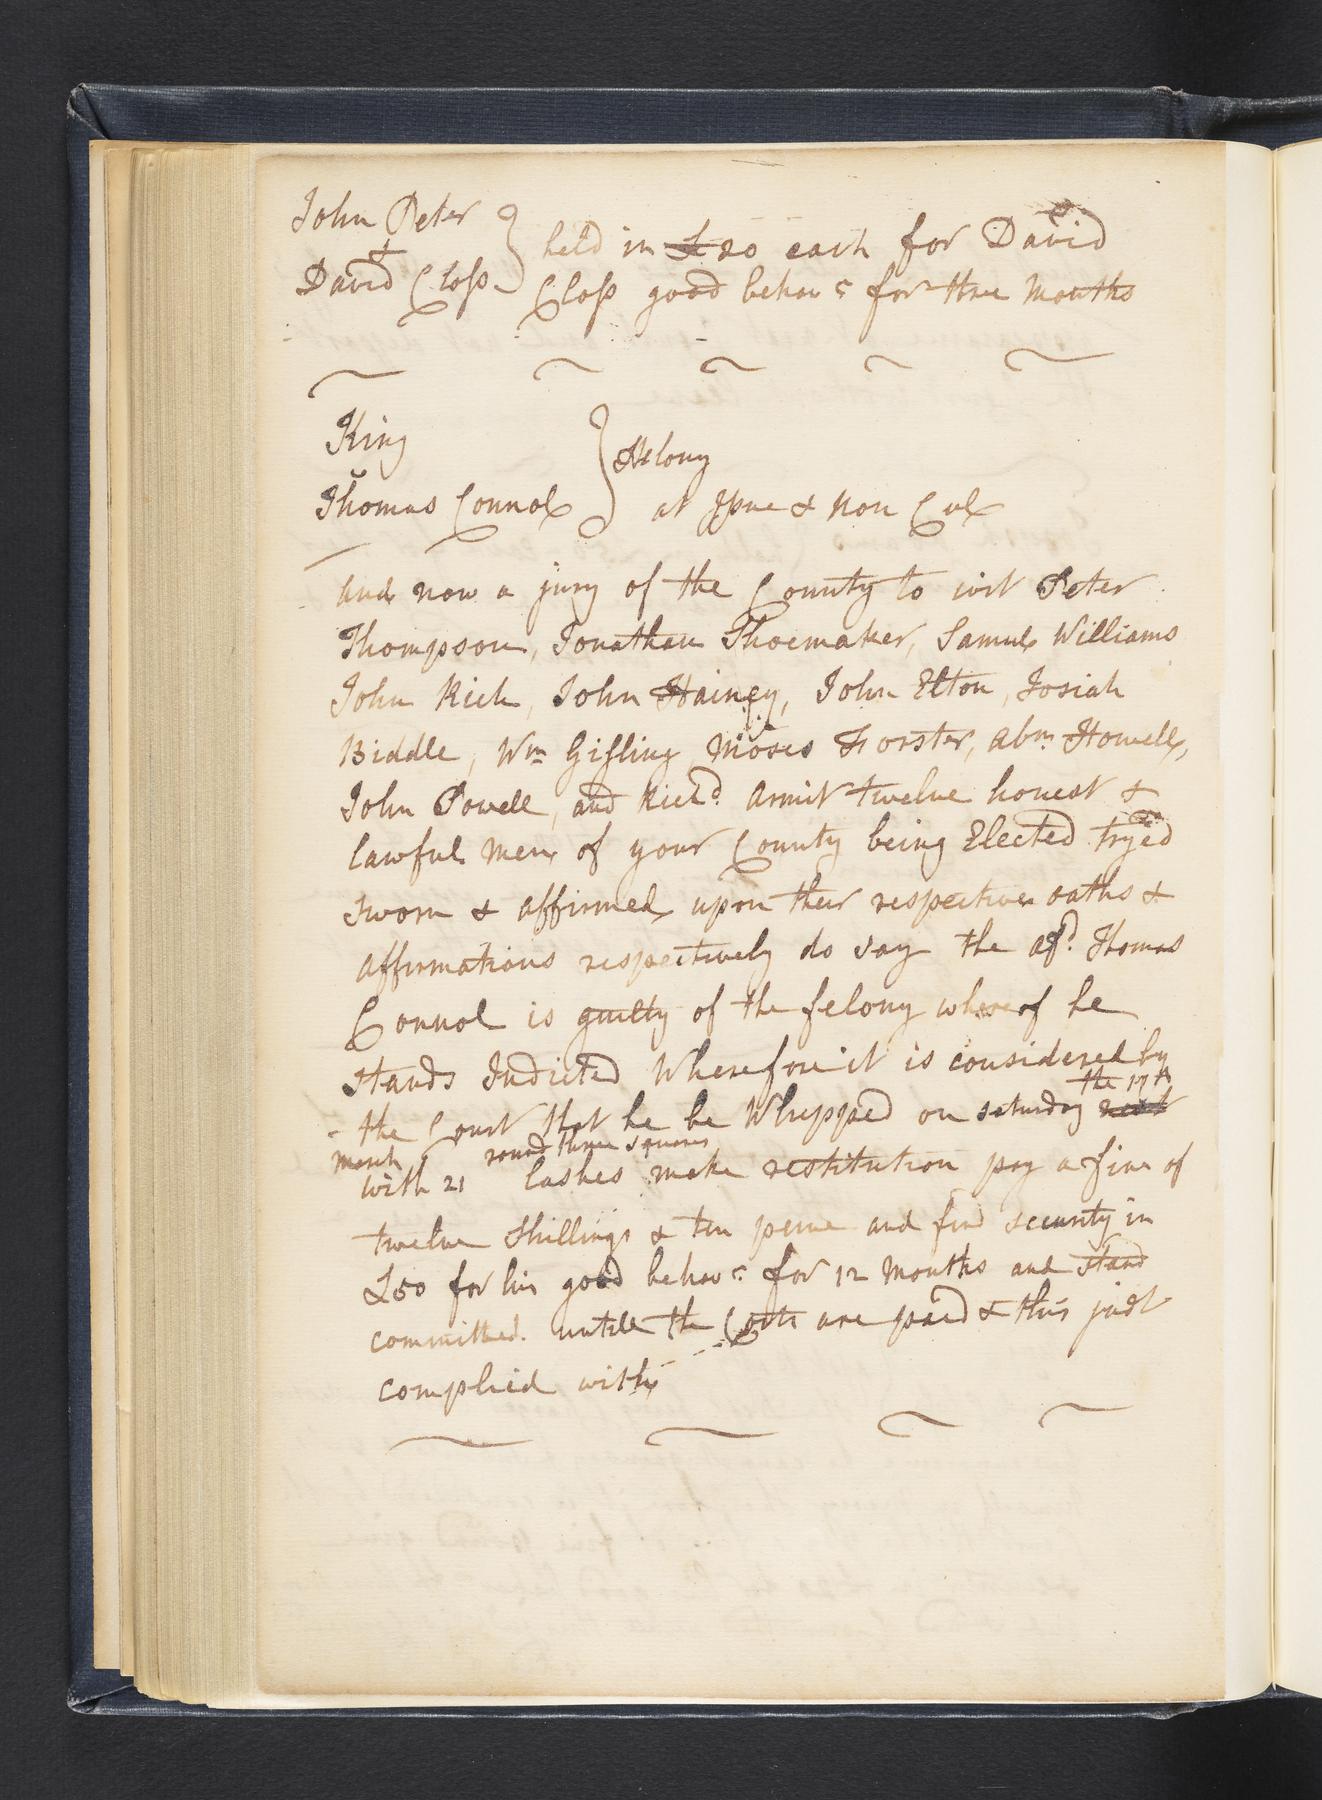 John Peter
&
David Closs
held in £20 each for David
Closs good behavr for three Months
King
v
Thomas Connol
Felony
at Issue & Non Cul
And now a jury of the County to wit Peter
Thompson, Jonathan Shoemaker, Samul Williams
John Rich, John Hainey, John Elton, Josiah
Biddle, Wm Gisling Moses Forster, Abm Howell,
John Powell, and Richd Armit twelve honest &
lawful Men of your County being Elected tryed
sworn & affirmed upon their respective oaths &
affirmations respectively do say the afd Thomas
Connol is guilty of the felony whereof he
stands Indicted Wherefore it is considered by
the 17th
the Court that he be Whipped on saturday next
March
round three squares
with 21 lashes make restitution pay a fine of
twelve Shillings & ten pence and find security in
£50 for his good behavr for 12 Months and stand
committed untill the Costs are paid & this judt
complied with